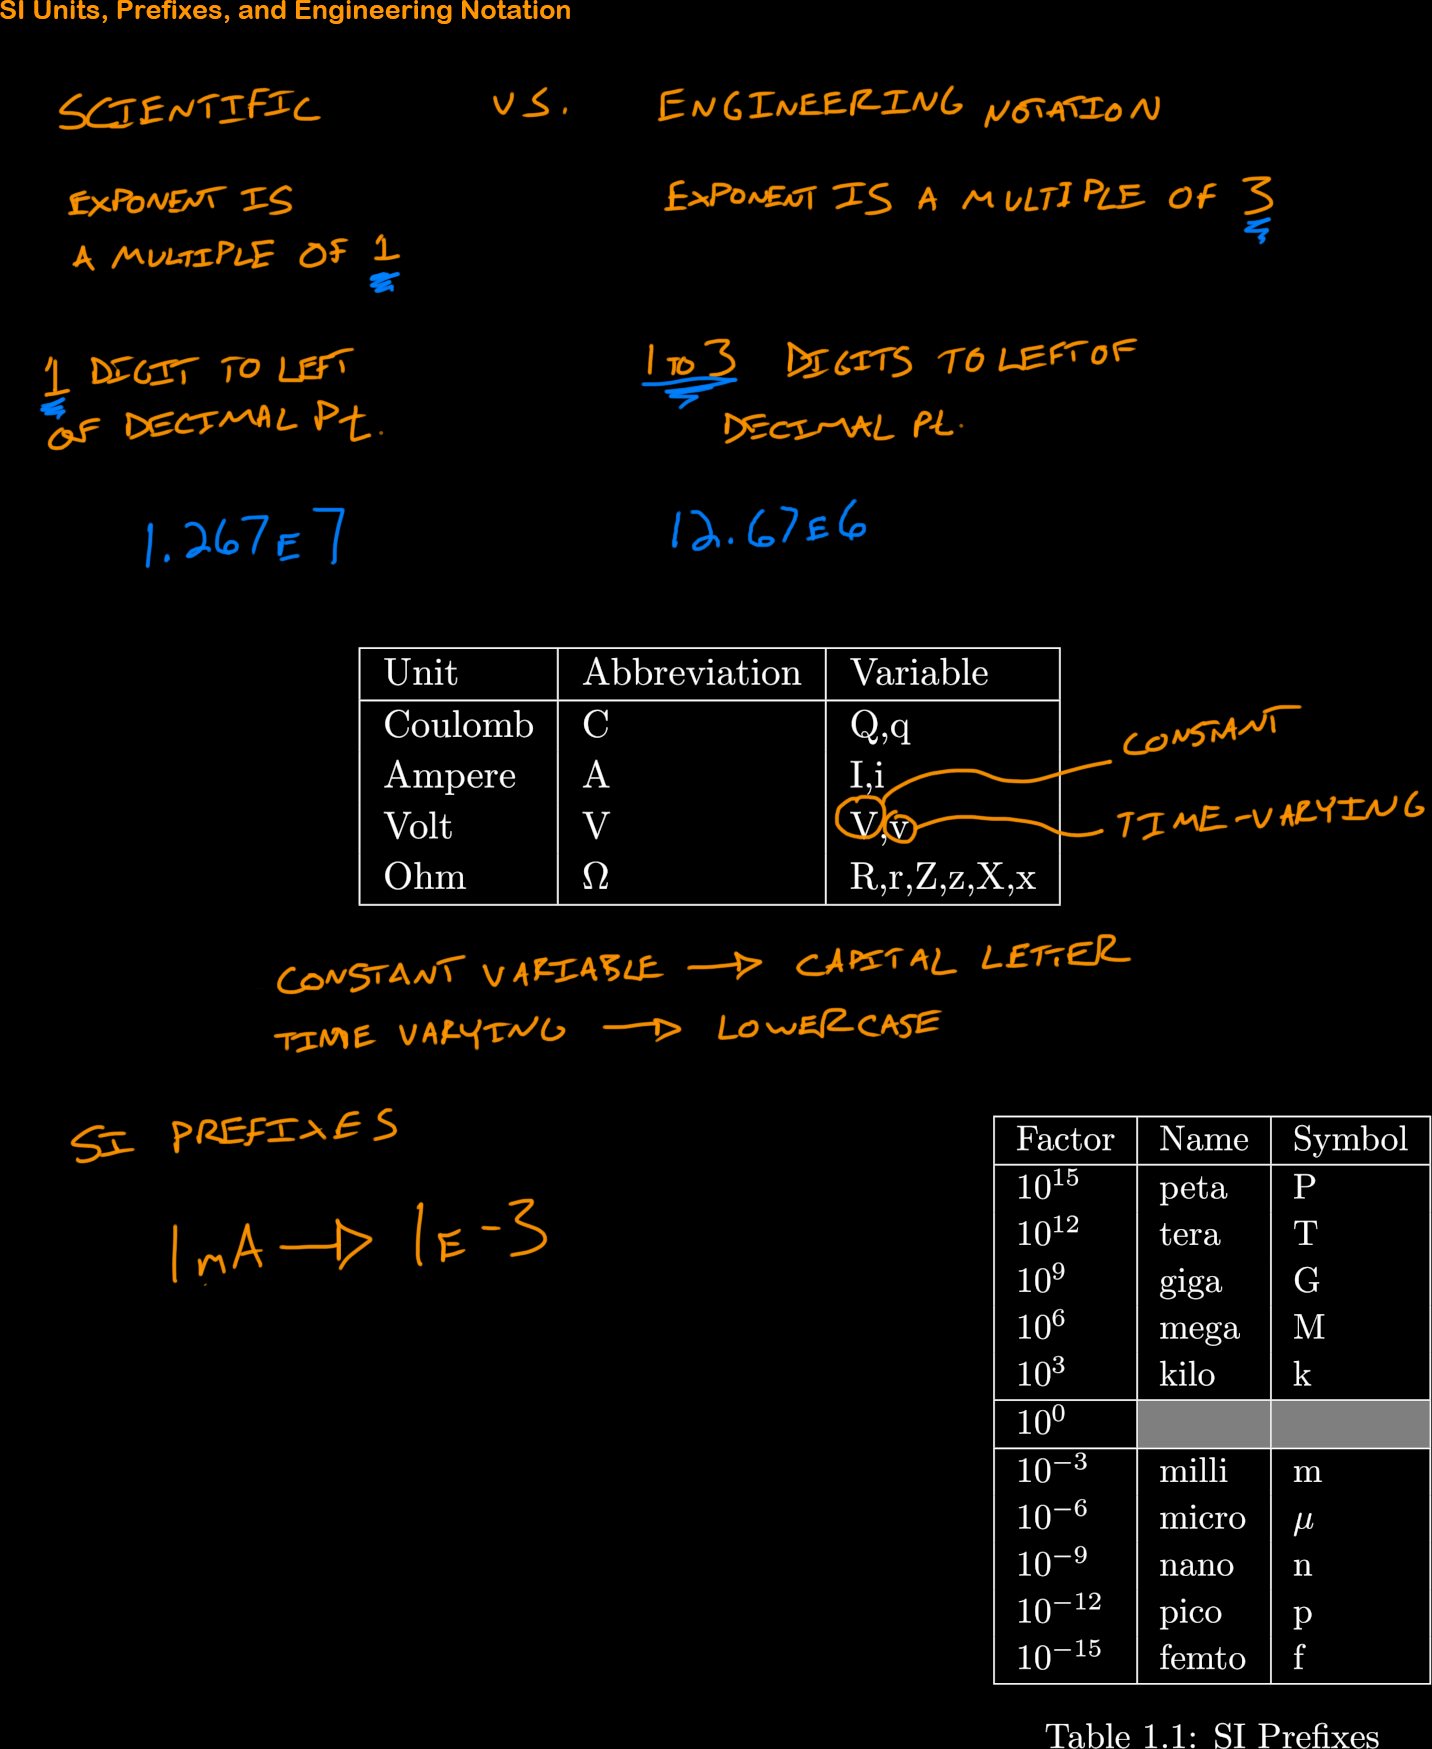 SI Units, Prefixes, and Engineering Notation
SCIENTIFIC VS. ENGINEERING NOTATION
EXPONENT IS
A MULTIPLE OF 1
EXPONENT IS A MULTIPLE OF 3
1 DIGIT TO LEFT
OF DECIMAL Pt.
1 TO 3 DIGITS TO LEFT OF
DECIMAL Pt.
1.267E7
12.67E6
Unit Abbreviation Variable
Coulomb C Q,q
Ampere A I,i
Volt V V,v
Ohm Ω R,r,Z,z,X,x
CONSTANT
TIME-VARYING
CONSTANT VARIABLE → CAPITAL LETTER
TIME VARYING → LOWERCASE
SI PREFIXES
1mA → 1E-3
Factor Name Symbol
10¹⁵ peta P
10¹² tera T
10⁹ giga G
10⁶ mega M
10³ kilo k
10⁰
10⁻³ milli m
10⁻⁶ micro μ
10⁻⁹ nano n
10⁻¹² pico p
10⁻¹⁵ femto f
Table 1.1: SI Prefixes